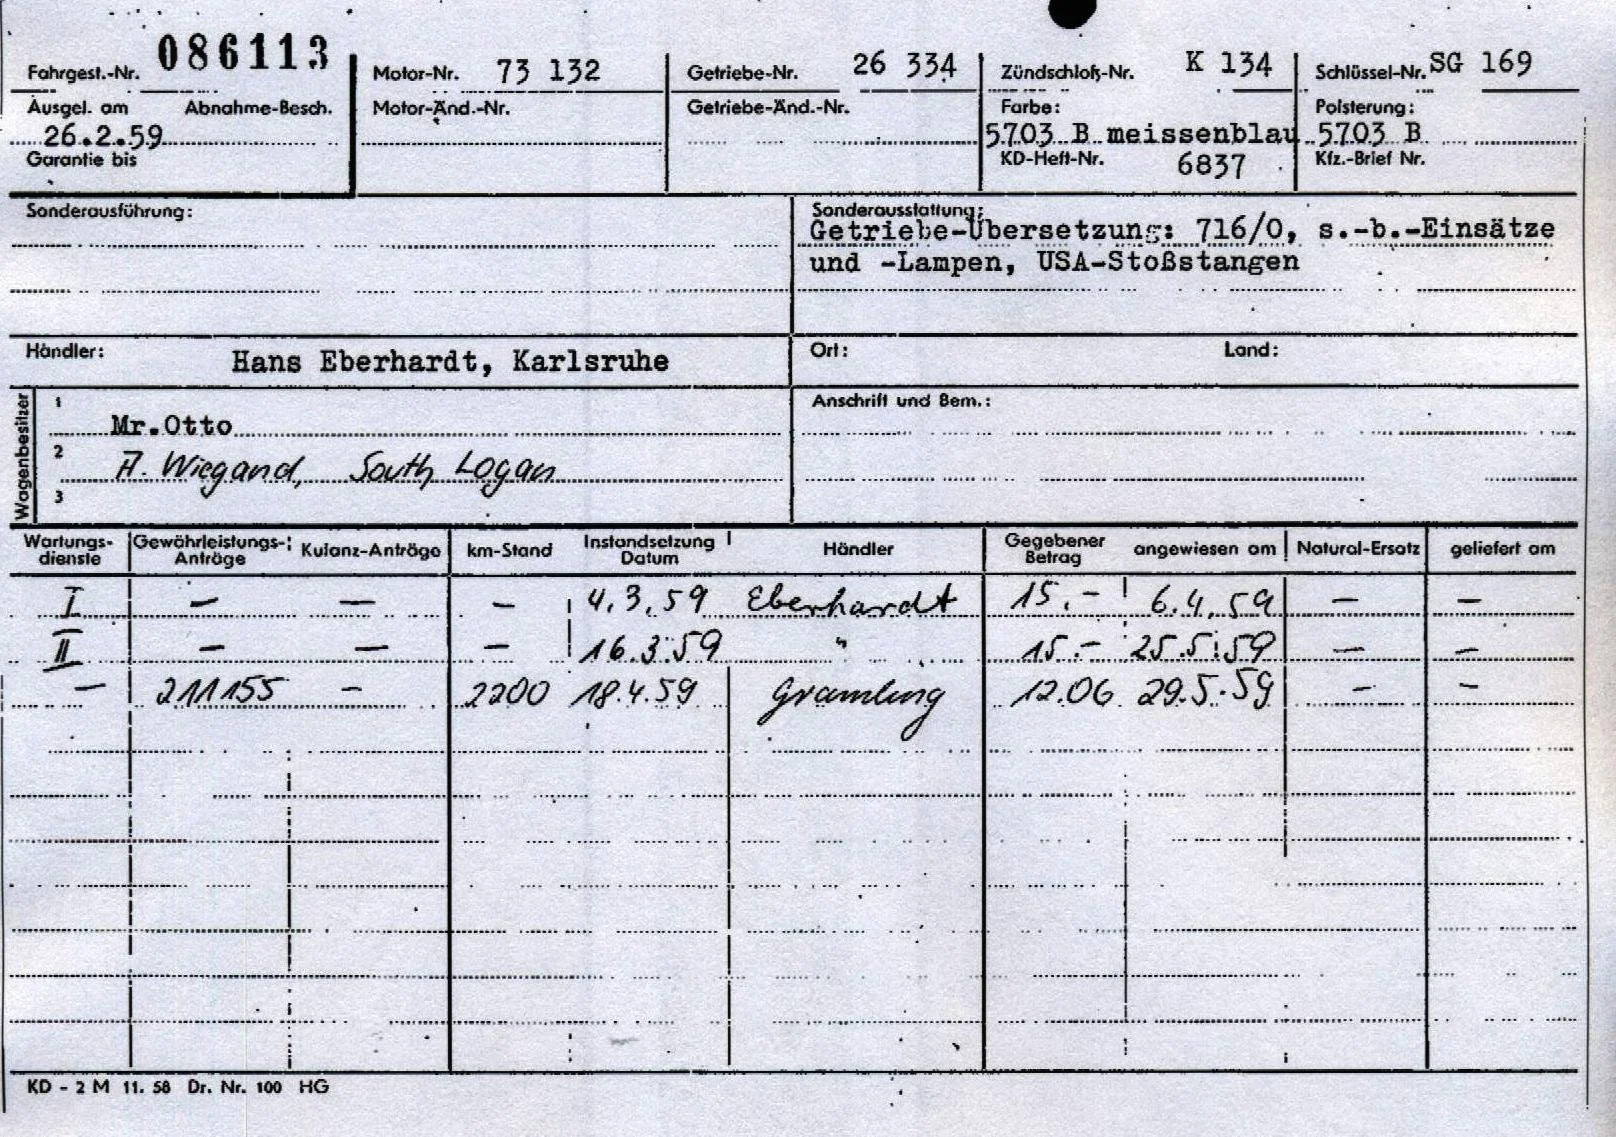 Fahrgest.-Nr. 086113 Motor-Nr. 73 132 Getriebe-Nr. 26 334 Zündschloß-Nr. K 134 Schlüssel-Nr. SG 169
Ausgel. am Abnahme-Besch. Motor-Änd.-Nr. Getriebe-Änd.-Nr. Farbe: Polsterung:
26.2.59 5703 B meissenblau 5703 B
Garantie bis KD-Heft-Nr. 6837 Kfz.-Brief Nr.
Sonderausführung: Sonderausstattung:
Getriebe-Übersetzung: 716/0, s.-b.-Einsätze
und -Lampen, USA-Stoßstangen
Händler: Hans Eberhardt, Karlsruhe Ort: Land:
Wagenbesitzer
1 Anschrift und Bem.:
Mr.Otto
2 A. Wiegand, South Logan
3
Wartungs- Gewährleistungs- Kulanz-Anträge km-Stand Instandsetzung Händler Gegebener angewiesen am Natural-Ersatz geliefert am
dienste Anträge Datum Betrag
I — — — 4.3.59 Eberhardt 15.- 6.4.59 — —
II — — — 16.3.59 " 15.- 25.5.59 — —
— 211155 — 2200 18.4.59 Gramling 12.06 29.5.59 — —
KD - 2 M 11. 58 Dr. Nr. 100 HG